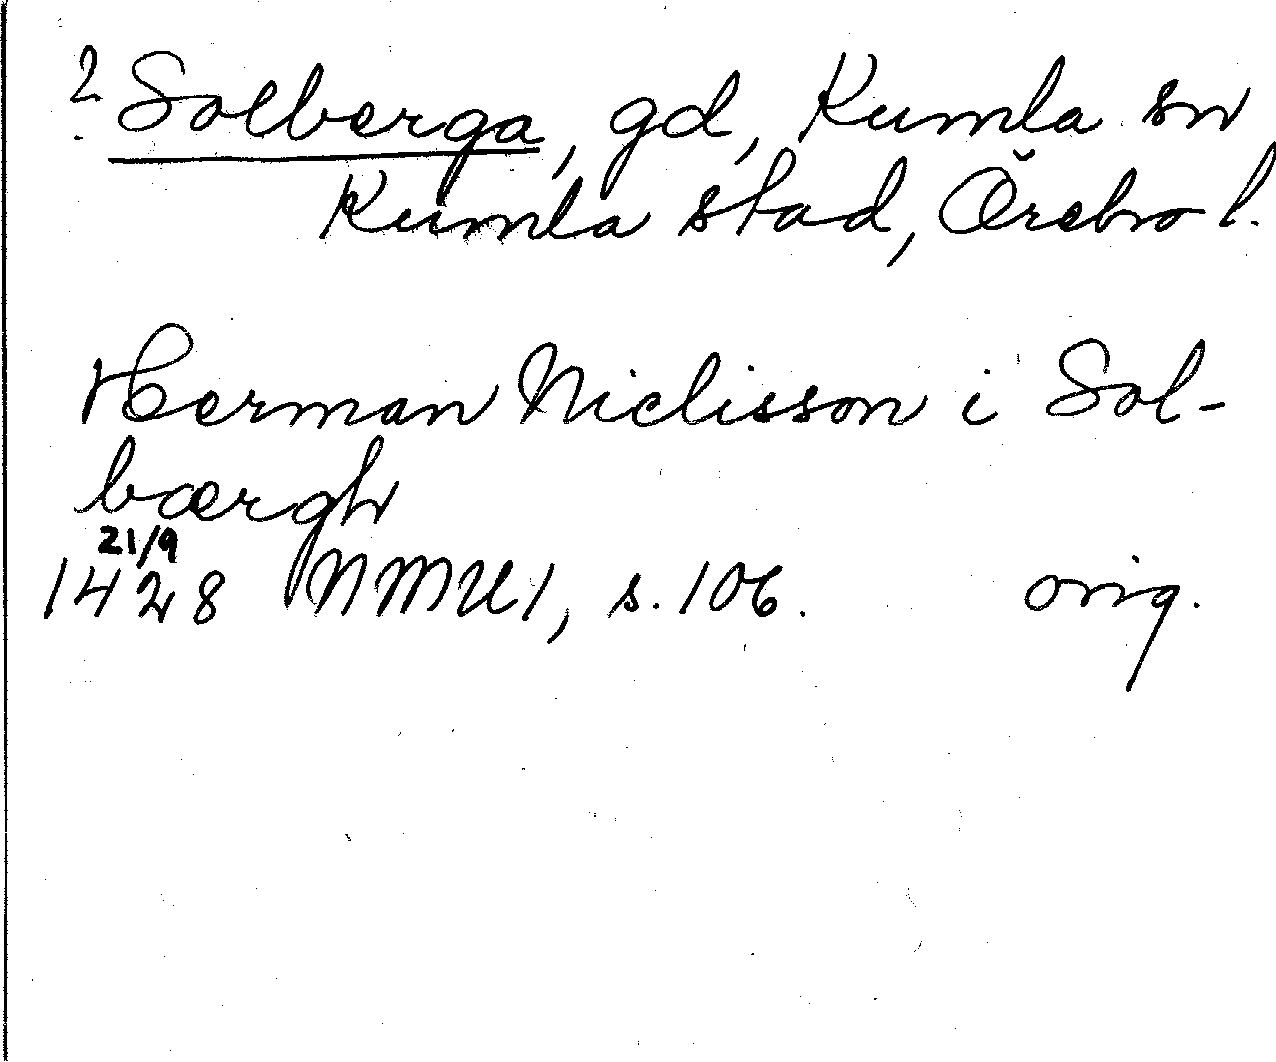 ? Solberga, gd, Kumla sn
Kumla stad, Örebro l.
Herman Niclisson i Sol-
bærgh
21/9
1428 NMU1, s. 106. orig.